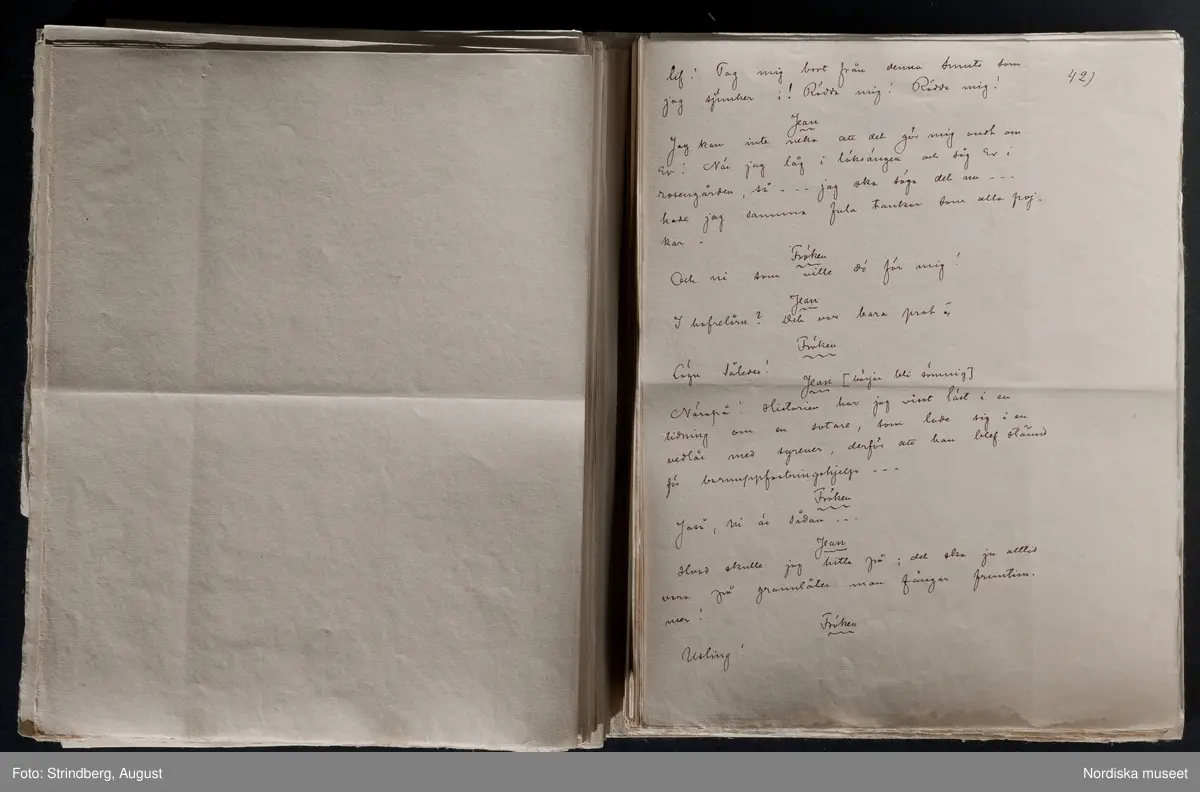 42)
lif! Tag mig bort från denna smuts som
jag sjunker i! Rädda mig! Rädda mig!
Jean
Jag kan inte neka att det gör mig ondt om
Er! När jag låg i löksängen och såg Er i
rosengården, så --- jag ska säga det nu ---
hade jag samma fula tankar som alla poj-
kar.
Fröken
Och ni som ville dö för mig!
Jean
I hafrelårn? Det var bara prat
Fröken
Lögn således!
Jean [börjar bli sömnig]
Närapå! Historien har jag visst läst i en
tidning om en sotare, som lade sig i en
vedlår med syrener, derför att han blef stämd
för barnuppfostringshjelp ---
Fröken
Jaså, ni är sådan ---
Jean
Hvad skulle jag hitta på; det ska ju alltid
vara på grannlåter man fångar fruntim-
mer!
Fröken
Usling!
Foto: Strindberg, August
Nordiska museet